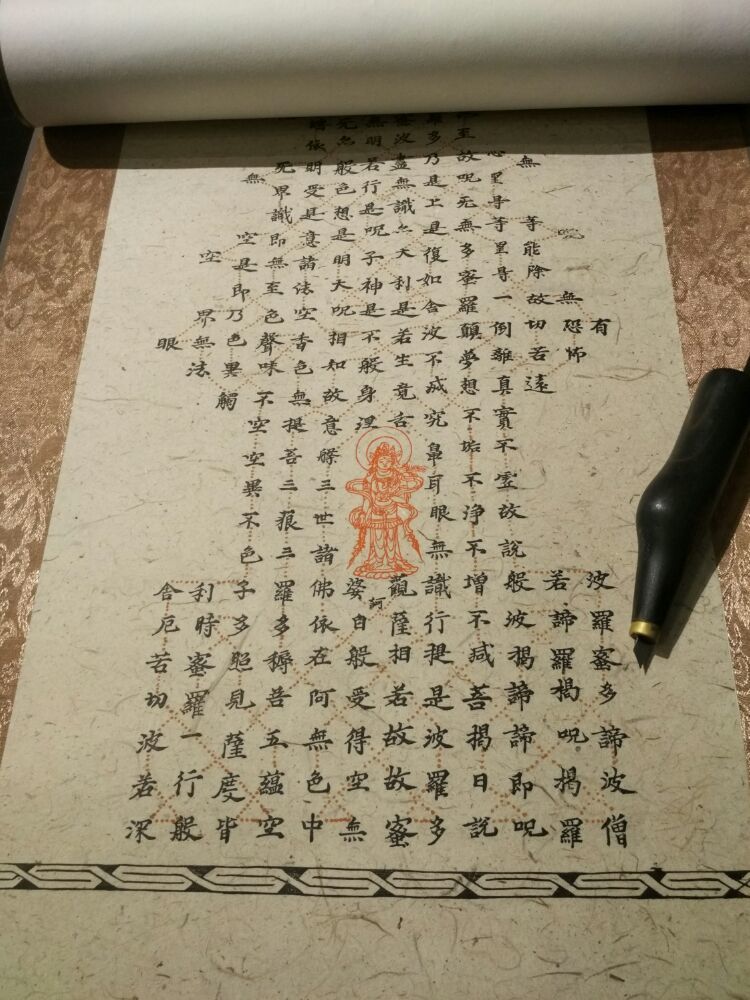 有
呪無恐怖
無等能除故切苦遠
波羅蜜多諦波僧
若諦羅揭呪揭羅
心一倒離真實不虛故說般波揭諦諦即呪
至故呪死無多蜜羅顛夢想不垢不淨不增不減菩揭日說
多乃是上是復如舍波不滅究鼻耳眼無識行提是波羅多
波盡無識亦天利是若生竟舌
觀薩相若故故蜜
無明若行是呪子神是不般身涅
訶
婆自般受得空無
死亦般色想是明大呪相知故意三世諸佛依在阿無色中
依明受是意諸法空香色無提三藐三羅多耨菩五蘊空
死界識即無至色聲味不空空異不色子多照見薩度皆
無
空是即乃色異觸
利時蜜羅一行般
空
界無法
眼
舍厄苦切波若深